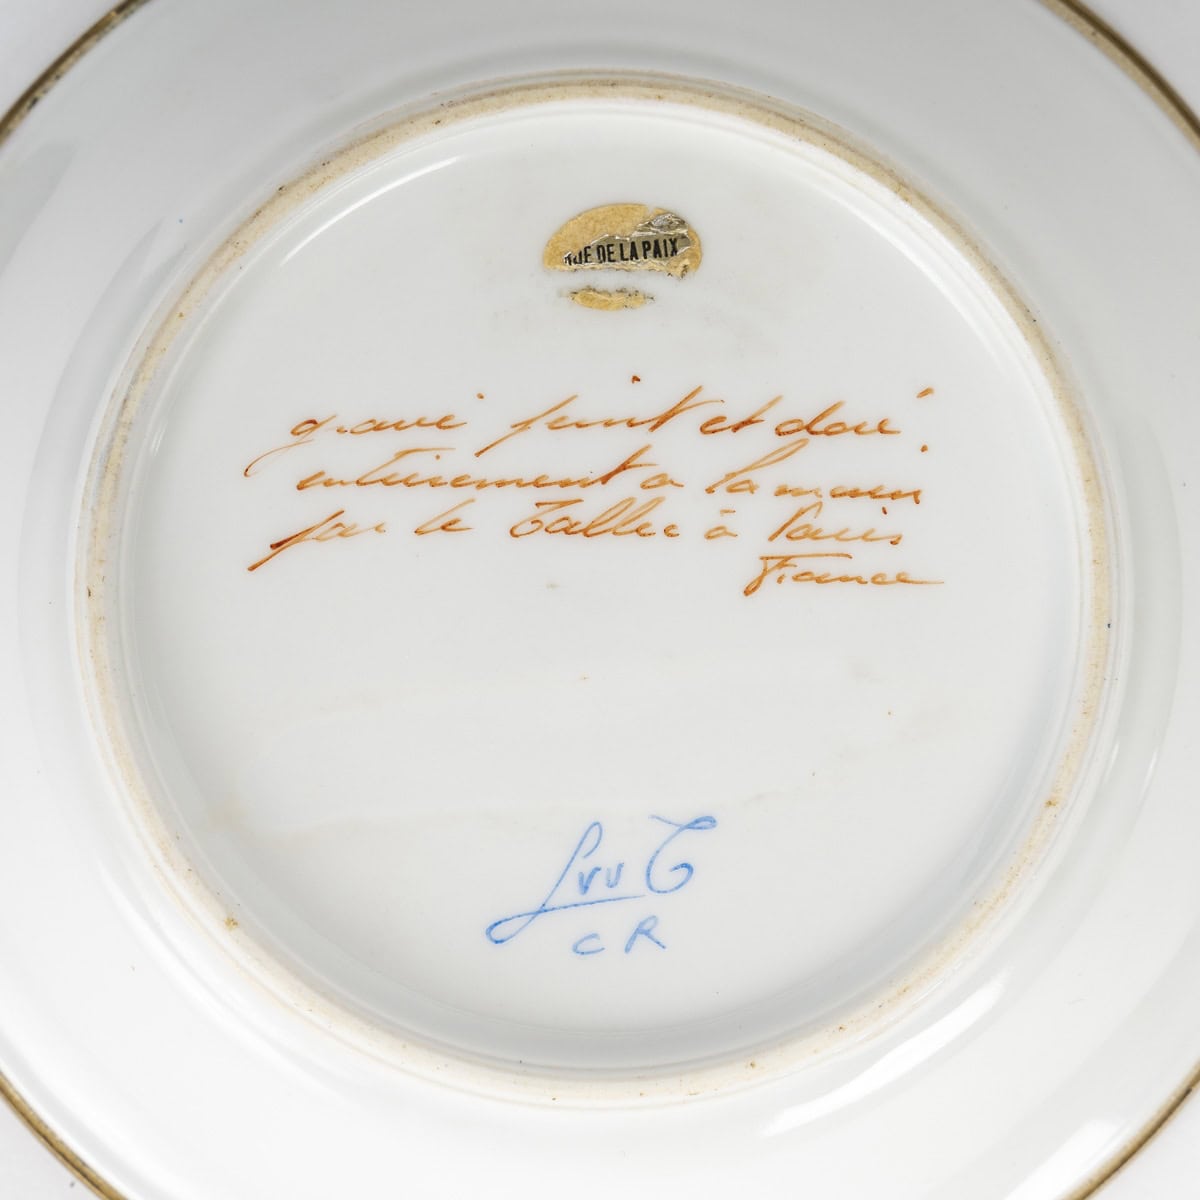 RUE DE LA PAIX
gravé peint et doré
entièrement a la main
par le Tallec à Paris
France
CR